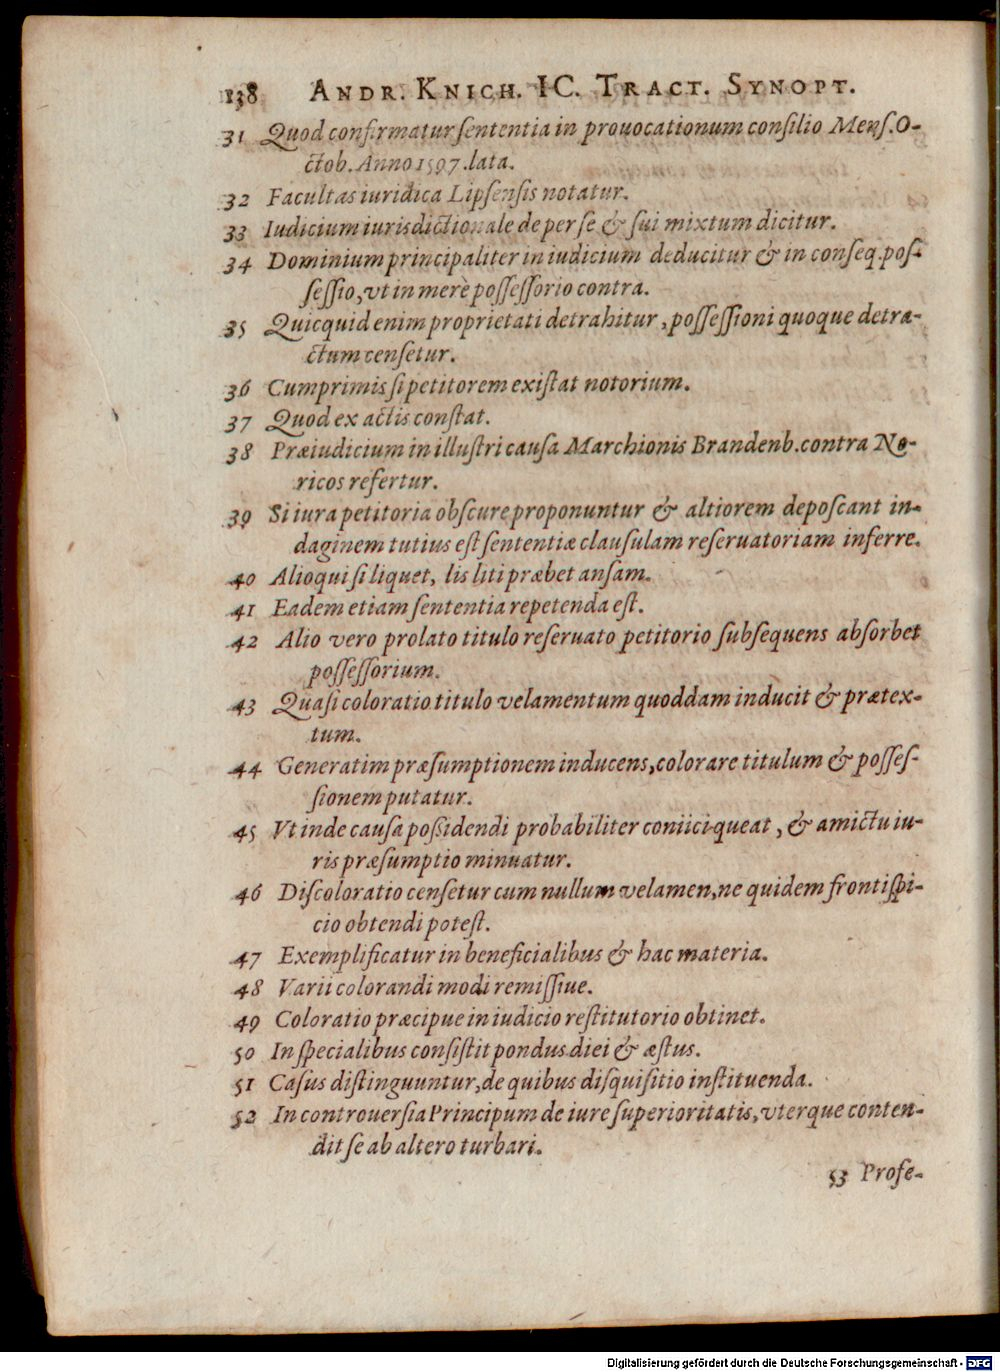 138 ANDR. KNICH. IC. TRACT. SYNOPT.
31 Quod confirmatur ſententia in prouocationum conſilio Menſ. O-
ctob. Anno 1597. lata.
32 Facultas iuridica Lipſenſis notatur.
33 Iudicium iurisdictionale de per ſe & ſui mixtum dicitur.
34 Dominium principaliter in iudicium deducitur & in conſeq. poſ-
ſeſſio, vt in merè poſſeſſorio contra.
35 Quicquid enim proprietati detrahitur, poſſeſſioni quoque detra-
ctum cenſetur.
36 Cumprimis ſi petitorem exiſtat notorium.
37 Quod ex actis conſtat.
38 Præiudicium in illuſtri cauſa Marchionis Brandenb. contra No-
ricos refertur.
39 Si iura petitoria obſcure proponuntur & altiorem depoſcant in-
daginem tutius eſt ſententiæ clauſulam reſeruatoriam inferre.
40 Alioqui ſi liquet, lis liti præbet anſam.
41 Eadem etiam ſententia repetenda eſt.
42 Alio vero prolato titulo reſeruato petitorio ſubſequens abſorbet
poſſeſſorium.
43 Quaſi coloratio titulo velamentum quoddam inducit & prætex-
tum.
44 Generatim præſumptionem inducens, colorare titulum & poſſeſ-
ſionem putatur.
45 Vt inde cauſa poſſidendi probabiliter coniici queat, & amictu iu-
ris præſumptio minuatur.
46 Diſcoloratio cenſetur cum nullum velamen, ne quidem frontiſpi-
cio obtendi poteſt.
47 Exemplificatur in beneficialibus & hac materia.
48 Varii colorandi modi remiſſiue.
49 Coloratio præcipue in iudicio reſtitutorio obtinet.
50 In ſpecialibus conſiſtit pondus diei & æſtus.
51 Caſus diſtinguuntur, de quibus diſquiſitio inſtituenda.
52 In controuerſia Principum de iure ſuperioritatis, vterque conten-
dit ſe ab altero turbari.
53 Profe-
Digitalisierung gefördert durch die Deutsche Forschungsgemeinschaft - DFG